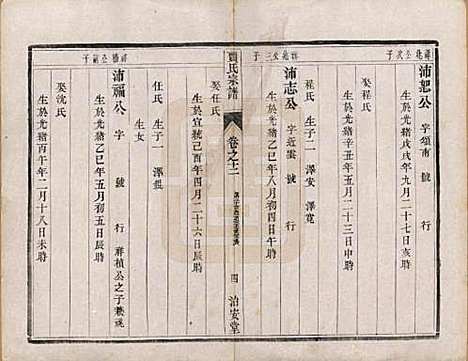 祥兆公次子
沛恕公 字頌南 號 行
生於光緒戊戌年九月二十七日辰時
娶程氏
生於光緒辛丑年五月二十三日申時
程氏 生子二 澤安 澤寬
祥兆公三子
沛志公 字近雲 號 行
生於光緒乙巳年八月初四日辰時
娶任氏
生於宣統己酉年四月二十六日辰時
賈氏宗譜
卷之十二
四
治安堂
任氏 生子二 澤
生女
祥楨公嗣子
沛福公 字 號 行 祥楨公之子兼祧
生於光緒乙巳年五月初五日辰時
娶沈氏
生於光緒丙午年二月十八日未時